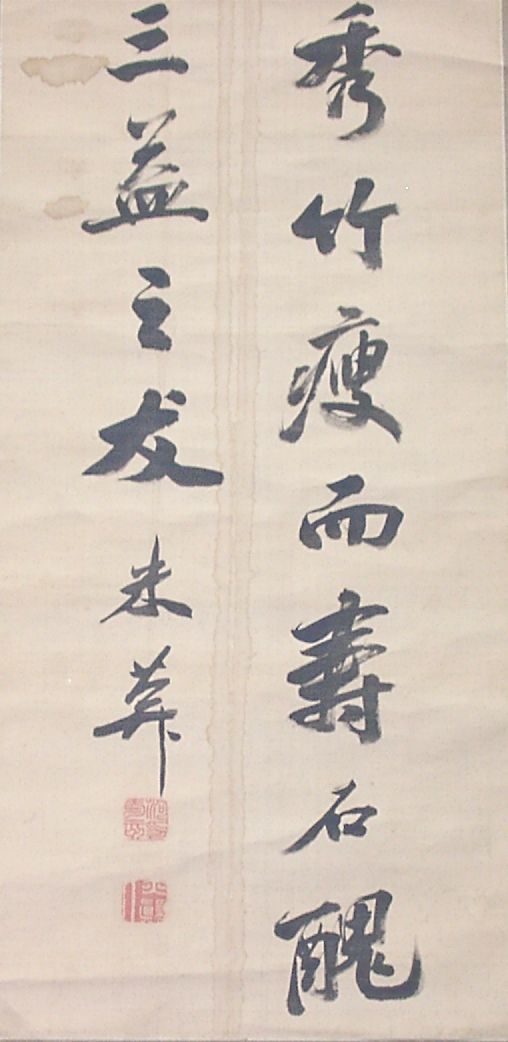 秀竹瘦而壽石醜
三益之友 米葊